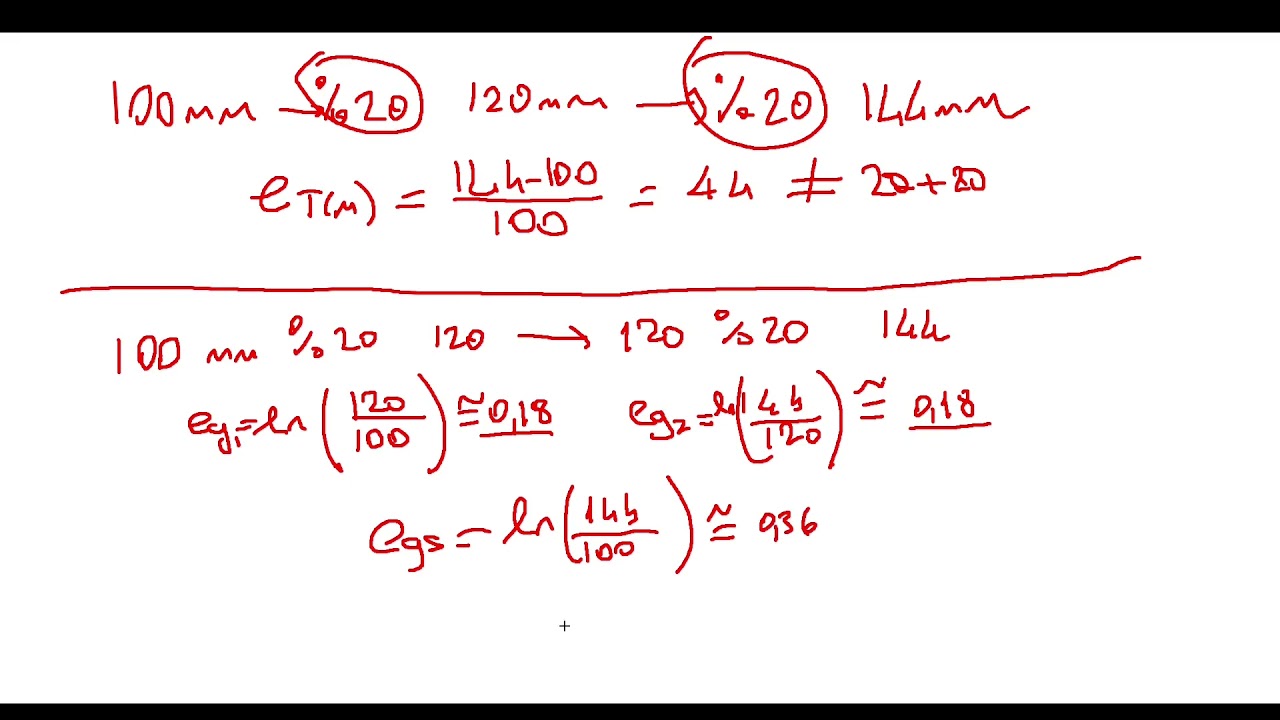 100 mm → %20 120 mm → %20 144 mm
e_T(M) = (144-100)/100 = 44 ≠ 20+20
100 mm %20 120 → 120 %20 144
eg₁ = ln(120/100) ≅ 0,18 eg₂ = ln(144/120) ≅ 0,18
egs = ln(144/100) ≅ 0,36